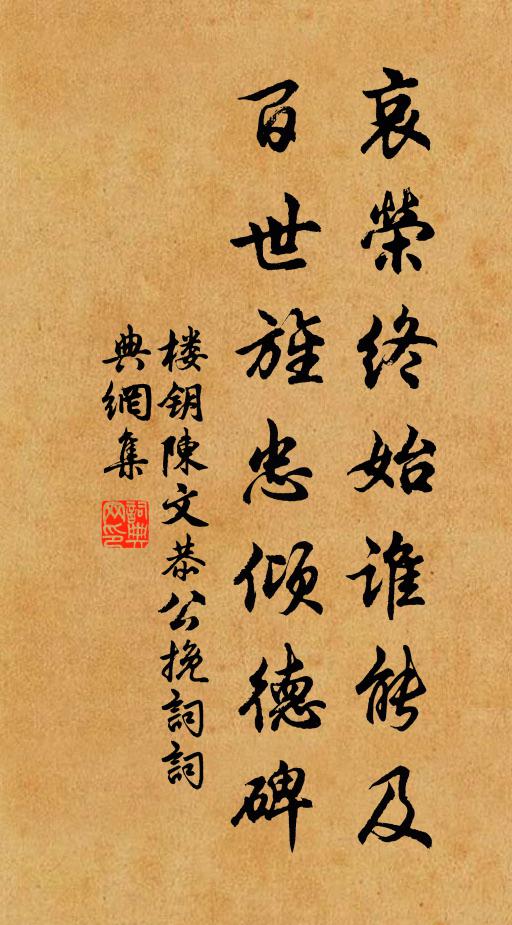 哀榮終始誰能及
百世旌忠傾德碑
楼钥陳文恭公挽詞詞
典網集
詞典網印